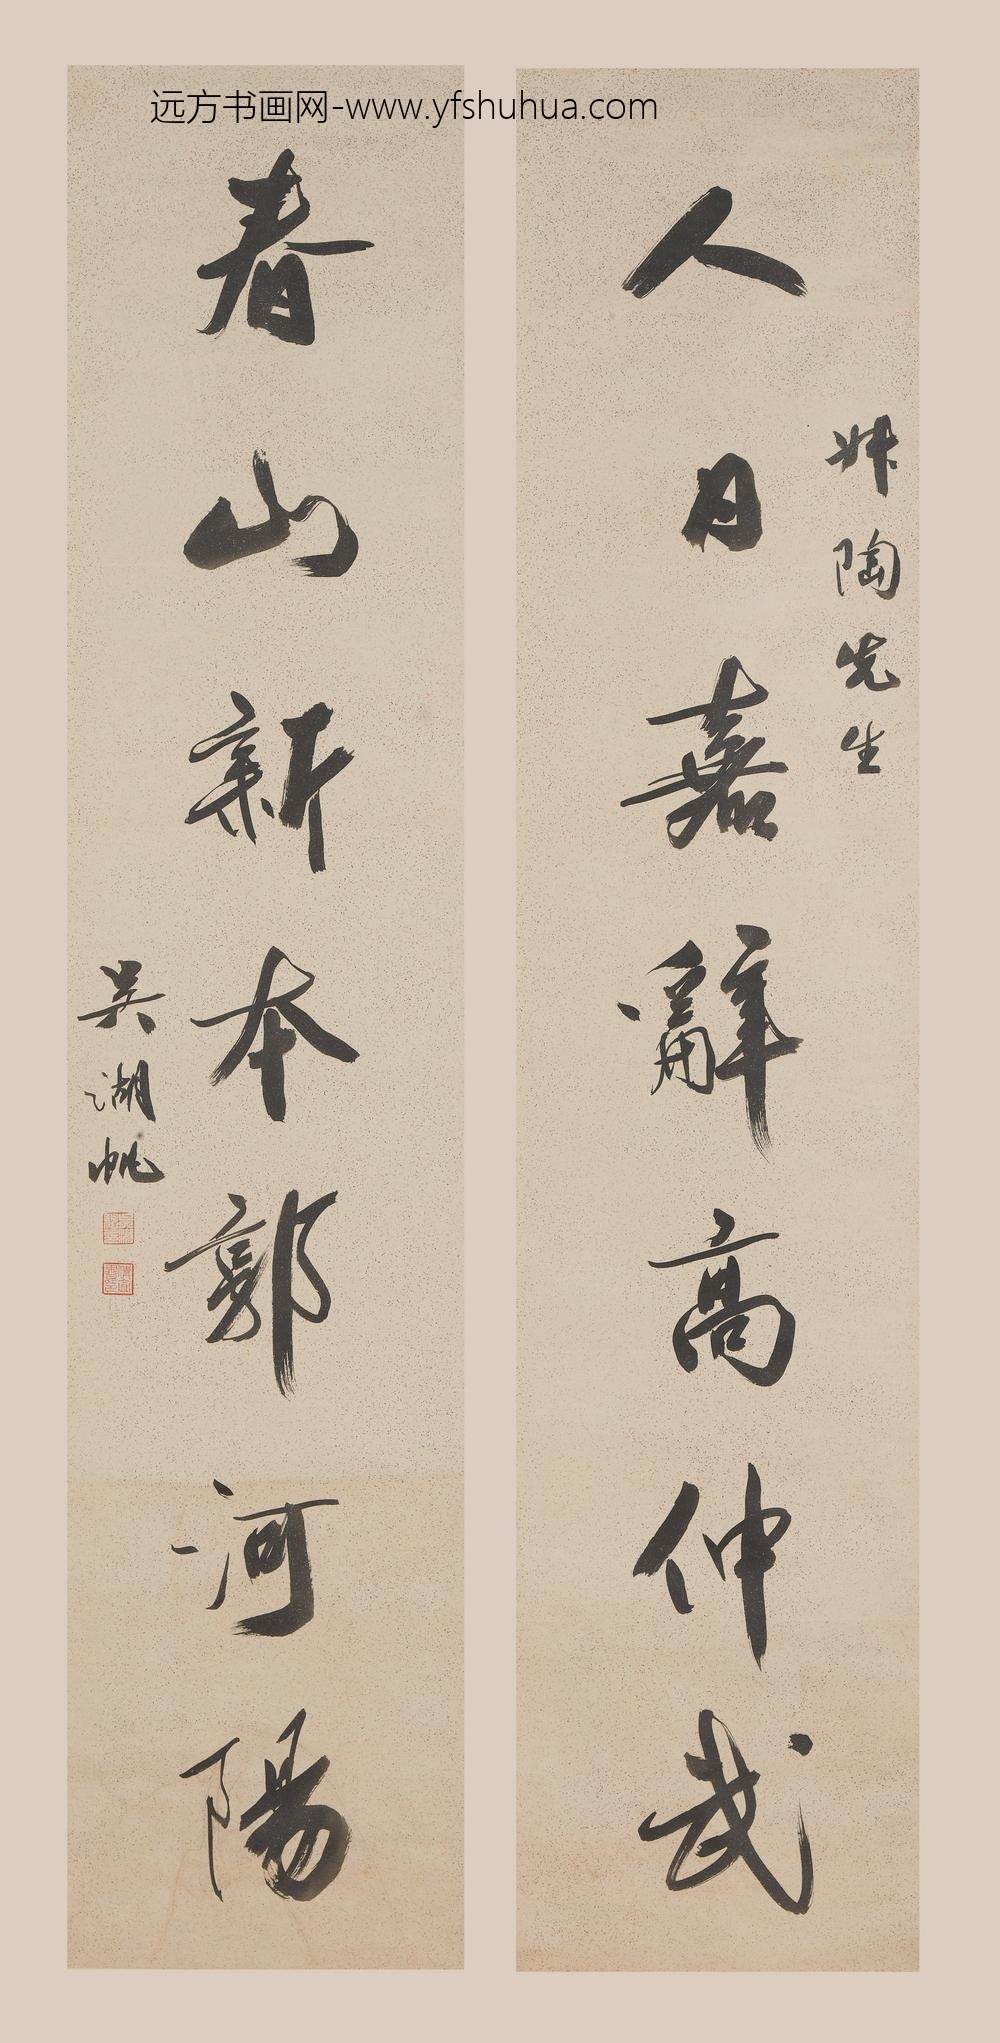 远方书画网-www.yfshuhua.com
人日嘉辭高仲武
陶先生
春山新本郭河陽
吴湖帆